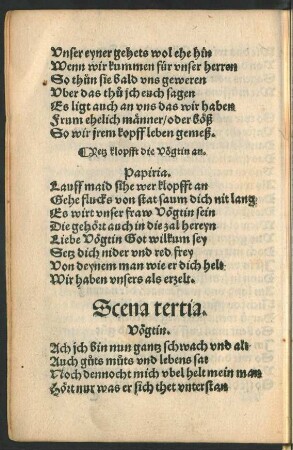 Vnser eyner gehets wol ehe hin
Wenn wir kummen für vnser herren
So thün sie bald vns geweren
Vber das thů jch euch sagen
Es ligt auch an vns das wir haben
Frum ehelich männer/oder böß
So wir jrem kopff leben gemeß.
¶Ietz klopfft die Vögtin an.
Papiria.
Lauff maid sihe wer klopfft an
Gehe flucks von stat saum dich nit lang
Es wirt vnser fraw Vögtin sein
Die gehöt auch in die zal hereyn
Liebe Vögtin Got wilkum sey
Setz dich nider vnd red frey
Von deynem man wie er dich helt
Wir haben vnsers als erzelt.
Scena tertia.
Vögtin.
Ach jch bin nun gantz schwach vnd alt
Auch gůts můts vnd lebens sat
Noch dennocht mich vbel helt mein man
Hört nur was er sich thet vnterstan